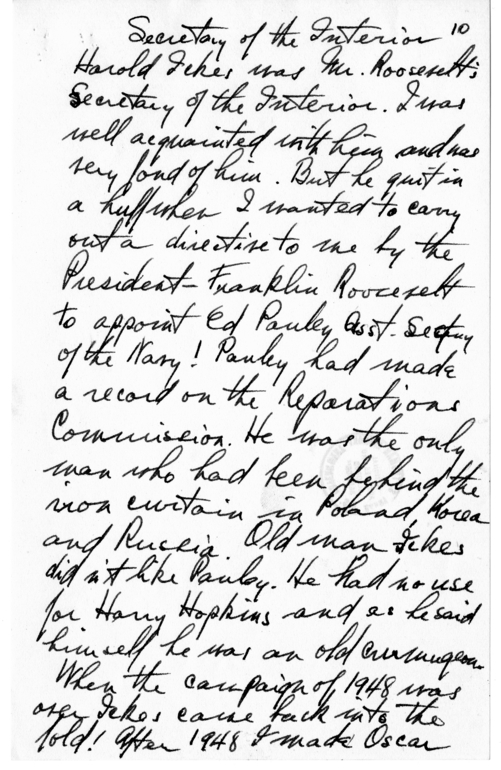 Secretary of the Interior 10
Harold Ickes was Mr. Roosevelt's
Secretary of the Interior. I was
well acquainted with him and was
very fond of him. But he quit in
a huff when I wanted to carry
out a directive to me by the
President - Franklin Roosevelt
to appoint Ed Pauley Asst. Sectuy
of the Navy! Pauley had made
a record on the Reparations
Commission. He was the only
man who had been behind the
iron curtain in Poland, Korea
and Russia. Old man Ickes
did n't like Pauley. He had no use
for Harry Hopkins and as he said
himself he was an old curmugeon.
When the campaign of 1948 was
over Ickes came back into the
fold! After 1948 I made Oscar